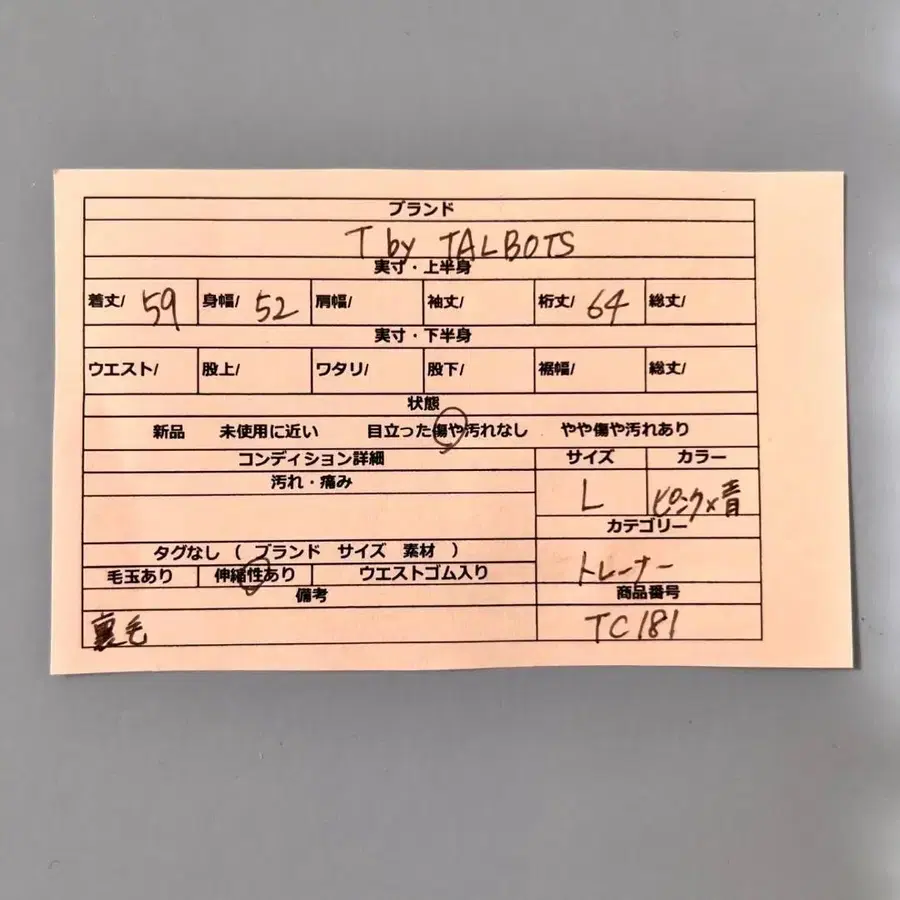 ブランド
T by TALBOTS
実寸・上半身
着丈/ 59 身幅/ 52 肩幅/ 袖丈/ 裄丈/ 64 総丈/
実寸・下半身
ウエスト/ 股上/ ワタリ/ 股下/ 裾幅/ 総丈/
状態
新品 未使用に近い 目立った傷や汚れなし やや傷や汚れあり
コンディション詳細 サイズ カラー
汚れ・痛み
L ピンク×青
カテゴリー
タグなし ( ブランド サイズ 素材 )
毛玉あり 伸縮性あり ウエストゴム入り トレーナー
備考 商品番号
裏毛 TC181